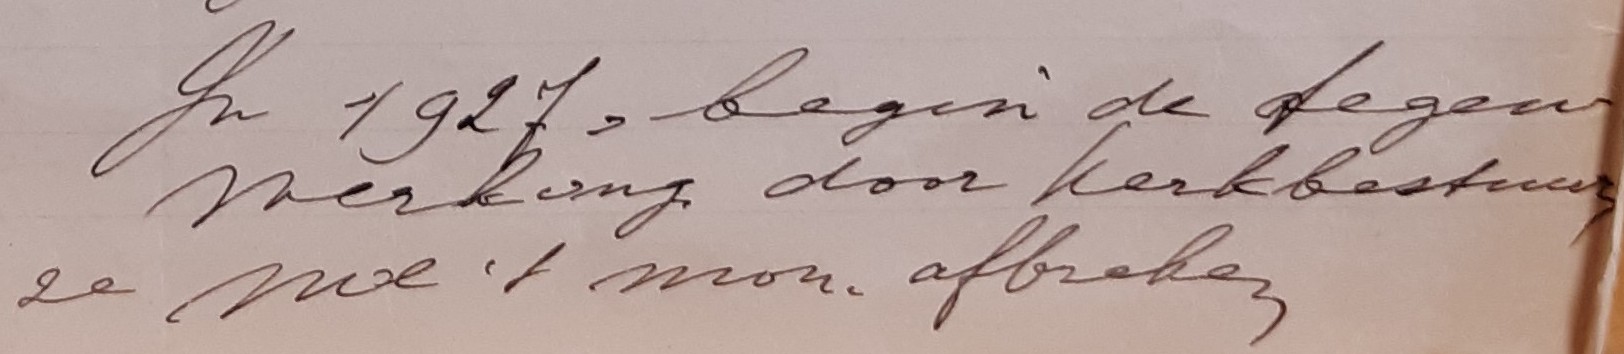 In 1927, begin de tegen
werking door kerkbestuur,
ze 't mon. afbreken